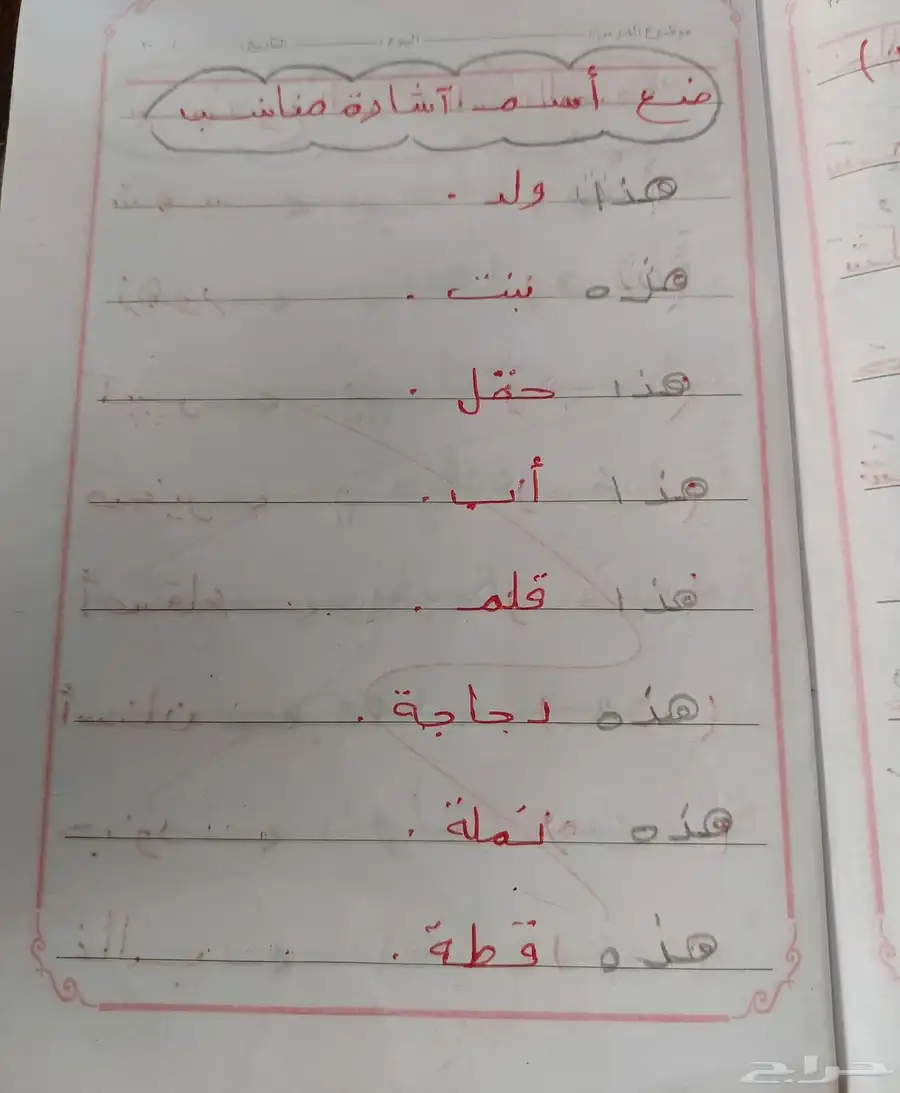 موضوع الدرس: اليوم: التاريخ:
ضع أسم آشارة مناسب
هذا ولد .
هذه بنت .
هذا حقل .
هذا أب .
هذا قلم .
هذه دجاجة .
هذه نملة .
هذه قطة .
حراج